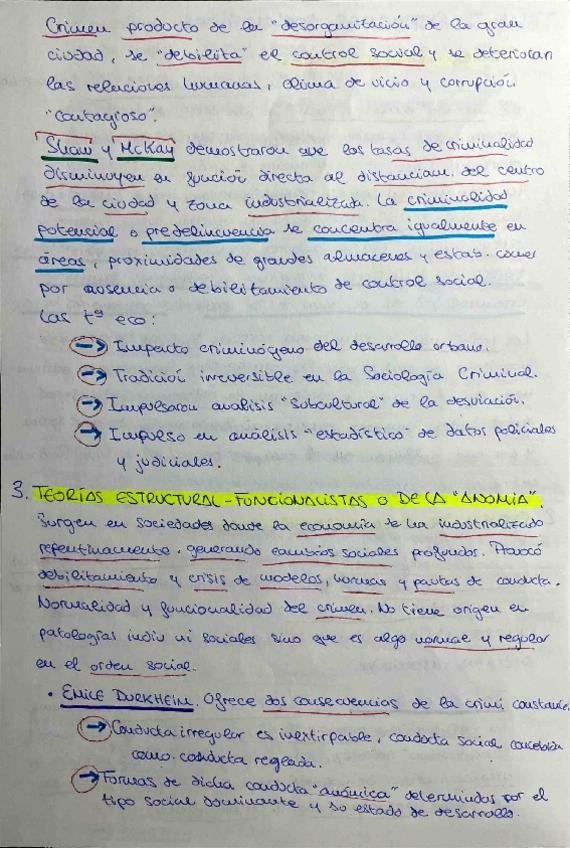 Crimen producto de la "desorganización" de la gran
ciudad, se "debilita" el control social y se deterioran
las relaciones humanas, clima de vicio y corrupción
"contagioso".
Shaw y McKay demostraron que las tasas de criminalidad
disminuyen en función directa al distanciam. del centro
de la ciudad y zona industrializada. La criminalidad
potencial o predelincuencia se concentra igualmente en
áreas, proximidades de grandes almacenes y estab. comer
por ausencia o debilitamiento de control social.
Las tª eco:
→ Impacto criminógeno del desarrollo urbano.
→ Tradición irreversible en la Sociología Criminal.
→ Impulsaron análisis "subcultural" de la desviación.
→ Impulso en análisis "estadístico" de datos policiales
y judiciales.
3. TEORÍAS ESTRUCTURAL-FUNCIONALISTAS O DE LA "ANOMIA".
Surgen en sociedades donde la economía se ha industrializado
repentinamente, generando cambios sociales profundos. Provocó
debilitamiento y crisis de modelos, normas y pautas de conducta.
Normalidad y funcionalidad del crimen. No tiene origen en
patologías indiv ni sociales sino que es algo normal y regular
en el orden social.
• EMILE DURKHEIM. Ofrece dos consecuencias de la crimi constante.
→ Conducta irregular es inextirpable, conducta social concebida
como conducta reglada.
→ Formas de dicha conducta "anómica" determinadas por el
tipo social dominante y su estado de desarrollo.